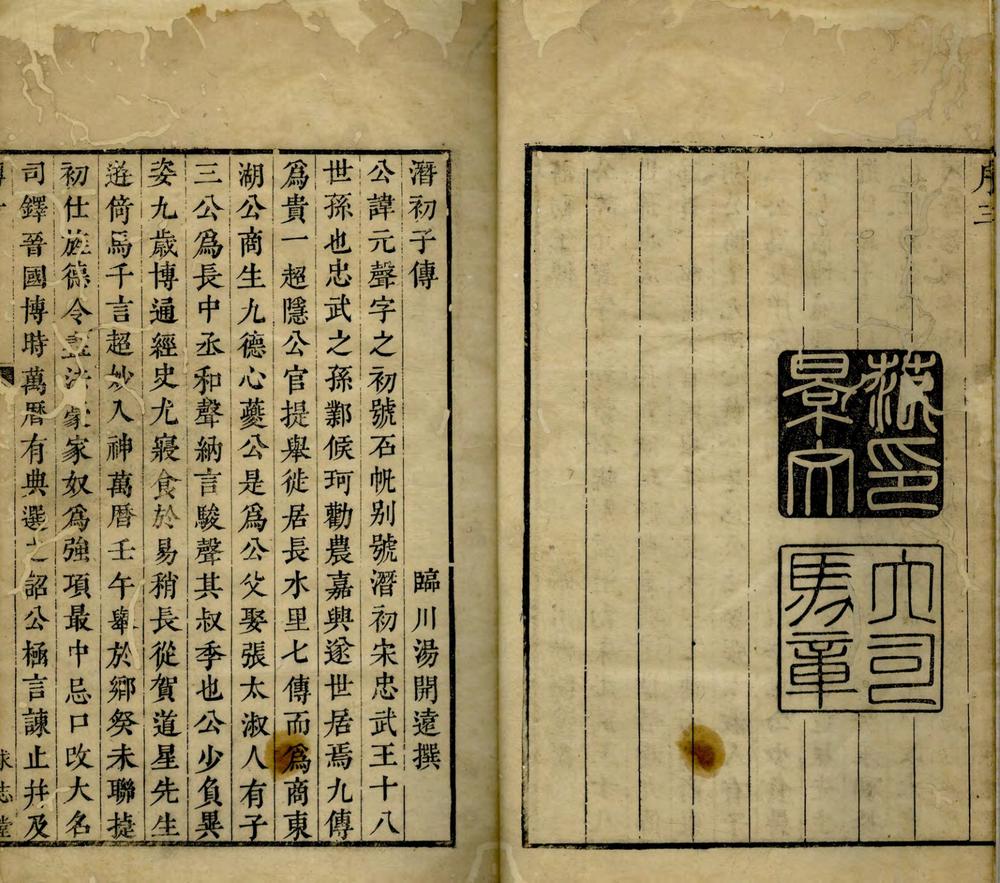 序三
范印
景文
大司
馬章
潛初子傳 臨川湯開遠撰
公諱元聲字之初號石帆别號潛初宋忠武王十八
世孫也忠武之孫鄴侯珂勸農嘉興遂世居焉九傳
爲貴一超隱公官提舉徙居長水里七傳而爲商東
湖公商生九德心蘷公是爲公父娶張太淑人有子
三公爲長中丞和聲納言駿聲其叔季也公少負異
姿九歲博通經史尤寢食於易稍長從賀道星先生
遊倚馬千言超妙入神萬曆壬午舉於鄉癸未聯捷
初仕旌德令豪家奴爲強項最中忌口改大名
司鐸晉國博時萬曆有典選之詔公極言諫止并及
求志堂